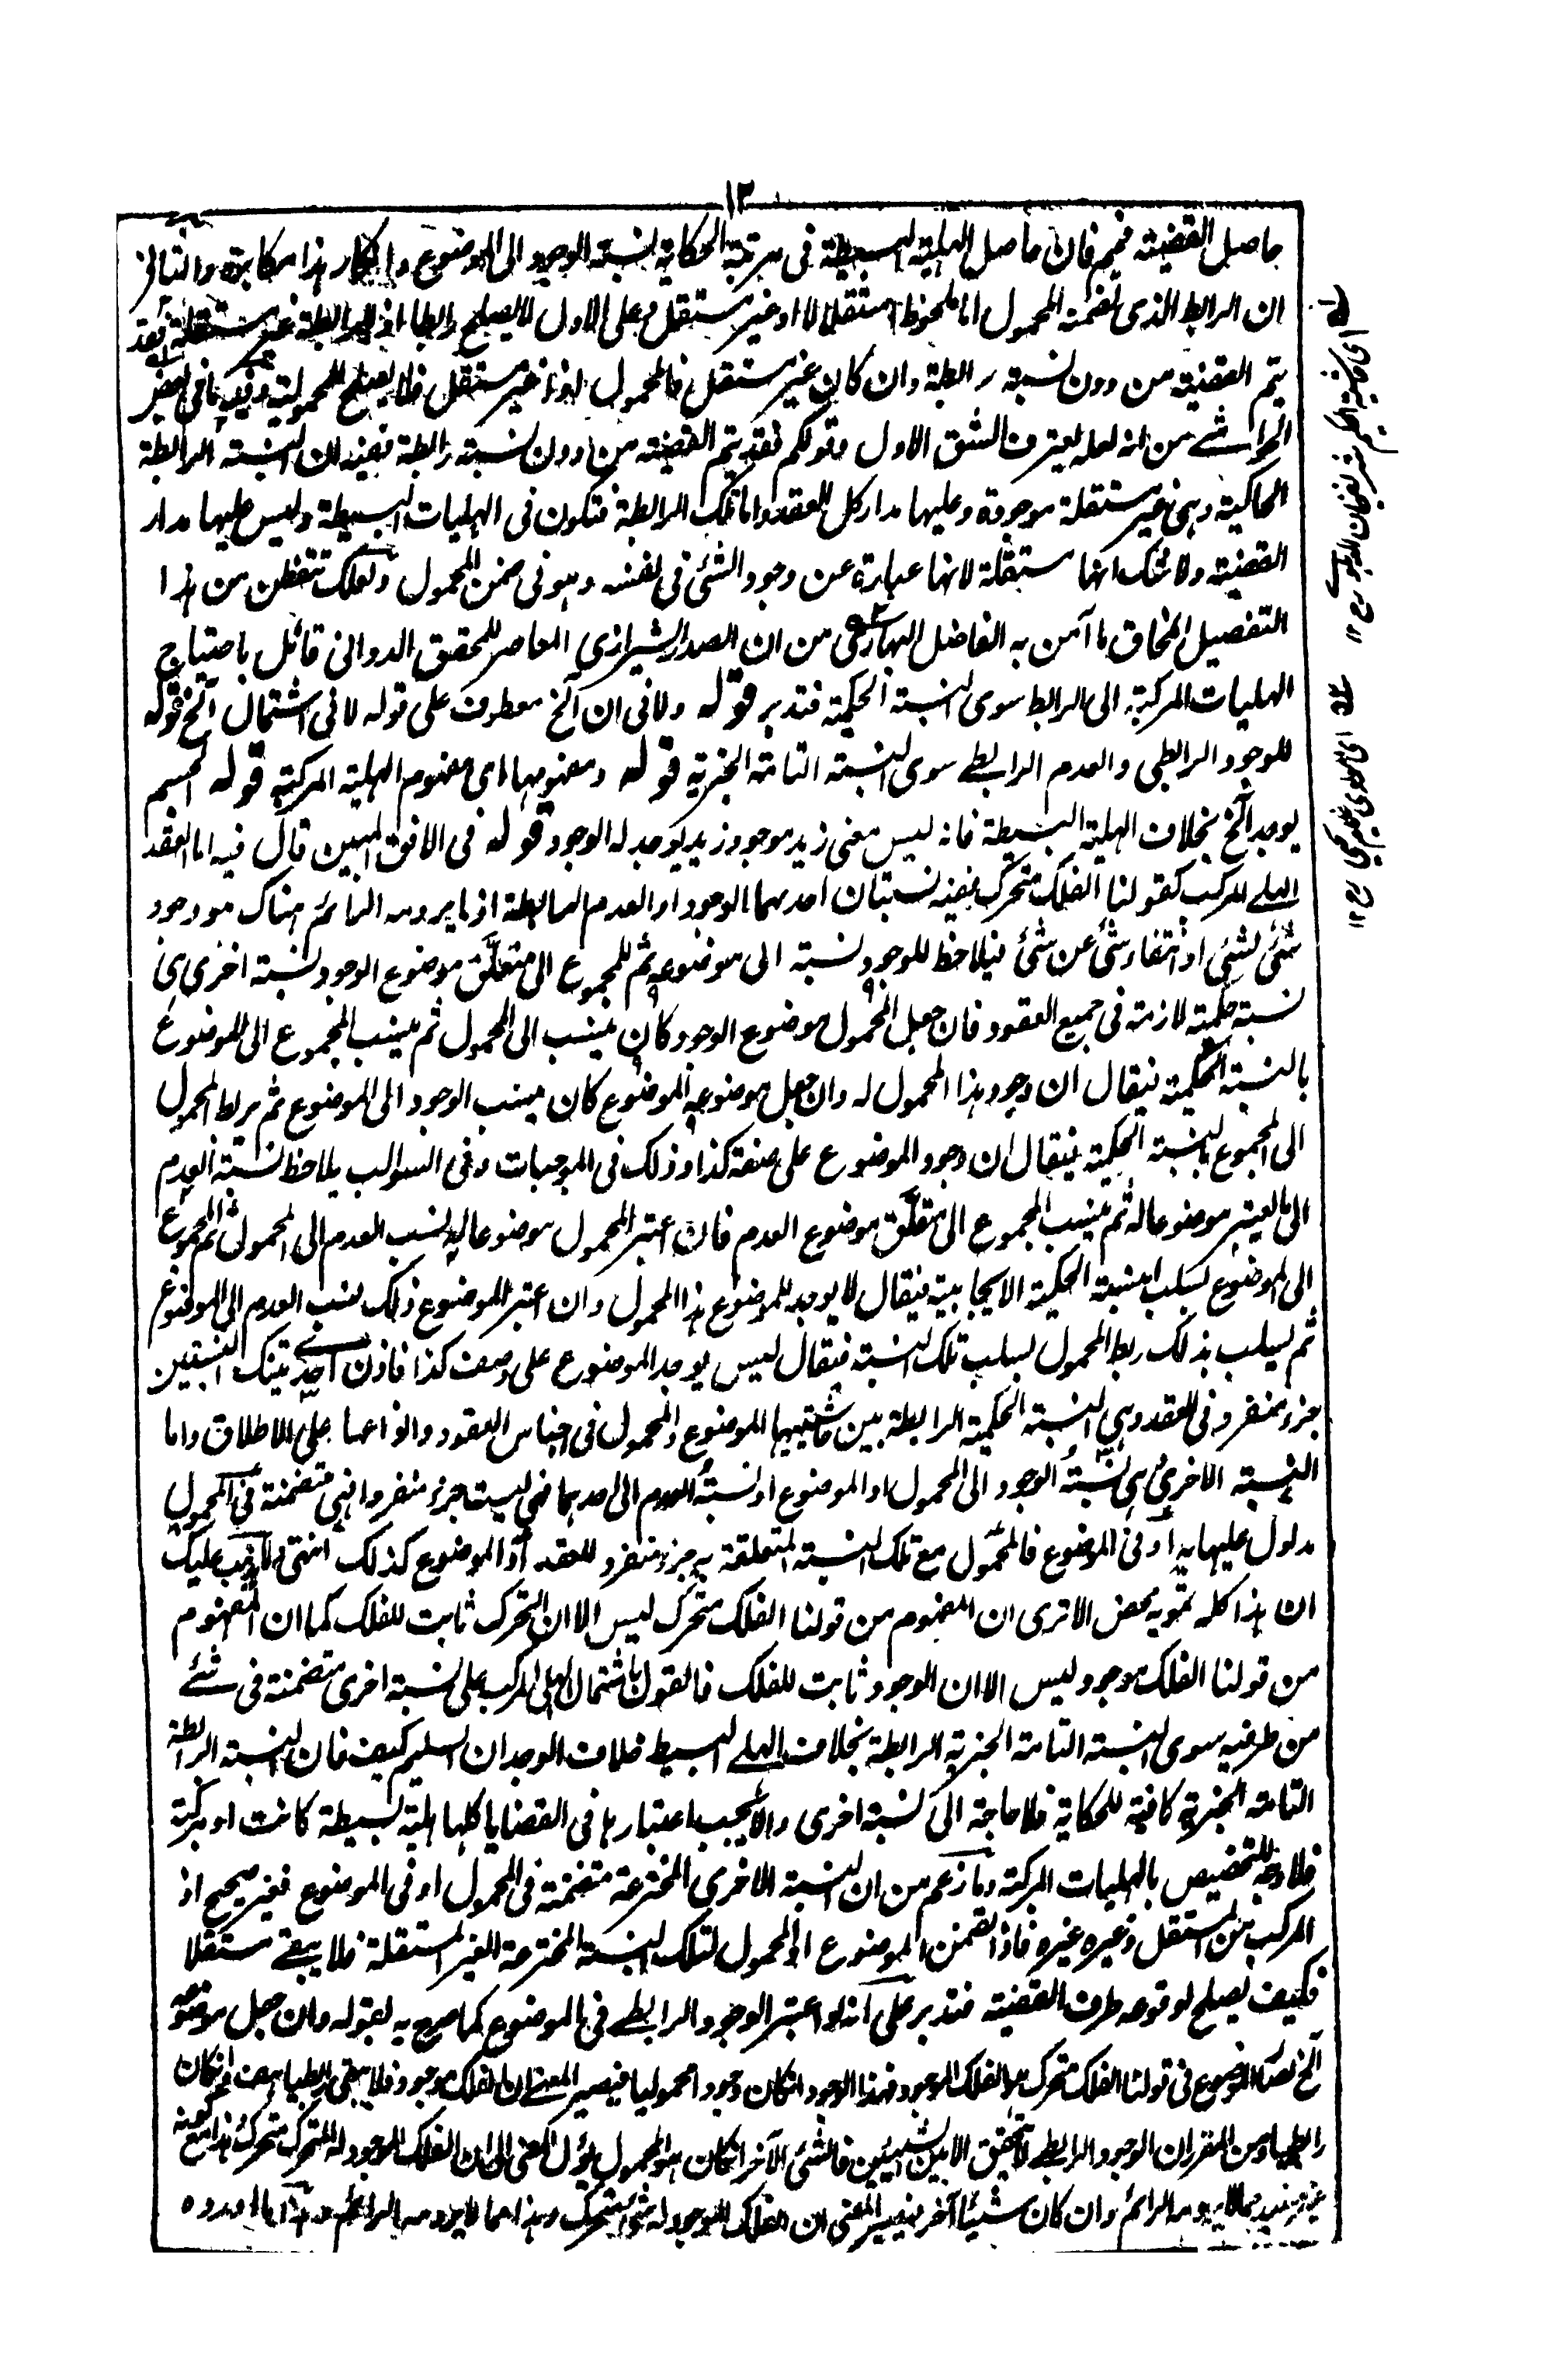 ١٣
حاصل القضية فيهم فان حاصل الهلية البسيطة فى مرتبة الحكاية نسبة الوجود الى الموضوع وانكار هذا مكابرة والثانى
ان الرابط الذى تضمنه المحمول اما ملحوظ استقلالا او غير مستقل وعلى الاول لا يصلح رابطا اذ الرابطة غير مستقلة فقد
يتم القضية من دون نسبة رابطة وان كان غير مستقل فالمحمول اذا غير مستقل فلا يصلح للمحمولية وفيه ما فى بعض
الحواشى من انه لعله يعترف بالشق الاول وقولكم فقد يتم القضية من دون نسبة رابطة ففيه ان النسبة الرابطة
الحاكية وهى غير مستقلة موجودة وعليها مدار كل العقد واما تلك الرابطة فتكون فى الهليات البسيطة وليس عليها مدار
القضية ولا شك انها مستقلة لانها عبارة عن وجود الشئ فى نفسه وهو فى ضمن المحمول ولعلك تتفطن من هذا
التفصيل سخافة ما آمن به الفاضل البهارى من ان الصدر الشيرازى المعاصر للمحقق الدوانى قائل باحتياج
الهليات المركبة الى الرابط سوى النسبة الحكمية فتدبر قوله ولا فى ان آلخ معطوف على قوله لا فى اشتمال آلخ قوله
للوجود الرابطى والعدم الرابطے سوى النسبة التامة الخبرية قوله ومفهومها اى مفهوم الهلية المركبة قوله الجسم
يوجد آلخ بخلاف الهلية البسيطة فانه ليس معنى زيد موجود زيد يوجد له الوجود قوله فى الافق المبين قال فيه اما العقد
الهلے المركب كقولنا الفلك متحرك ففيه نسبتان احدهما الوجود او العدم الرابطة اذ ما يرومه الرائم هناك هو وجود
شئ لشئ او انتفاء شئ عن شئ فيلاحظ للوجود نسبة الى موضوعه ثم للمجموع الى متعلق موضوع الوجود نسبة اخرى هى
نسبة حكمية لازمة فى جميع العقود فان جعل المحمول موضوع الوجود كان ينسب الى المحمول ثم ينسب المجموع الى الموضوع
بالنسبة الحكمية فيقال ان وجود هذا المحمول له وان جعل موضوعه الموضوع كان ينسب الوجود الى الموضوع ثم يربط المحمول
الى المجموع بالنسبة الحكمية فيقال ان وجود الموضوع على صفة كذا وذلك فى الموجبات وفى السوالب يلاحظ نسبة العدم
الى ما يعتبر موضوعا له ثم ينسب المجموع الى متعلق موضوع العدم فان اعتبر المحمول موضوعا له نسب العدم الى المحمول ثم المجموع
الى الموضوع بسلب النسبة الحكمية الايجابية فيقال لا يوجد للموضوع هذا المحمول وان اعتبر الموضوع ذلك نسب العدم الى الموضوع
ثم يسلب بذلك ربط المحمول بسلب تلك النسبة فيقال ليس يوجد الموضوع على وصف كذا فاذن احدى تينك النسبتين
جزء منفرد فى العقد وهى النسبة الحكمية الرابطة بين حاشيتيها الموضوع والمحمول فى اجناس العقود وانواعها على الاطلاق واما
النسبة الاخرى هى نسبة الوجود الى المحمول او الموضوع او نسبة العدم الى احدهما فهى ليست جزء منفردا فهى متضمنة فى المحمول
مدلول عليها به او فى الموضوع فالمحمول مع تلك النسبة المتعلقة به جزء منفرد للعقد او الموضوع كذلك انتهى ولا يذهب عليك
ان هذا كله تمويه محض الا ترى ان المفهوم من قولنا الفلك متحرك ليس الا ان التحرك ثابت للفلك كما ان المفهوم
من قولنا الفلك موجود ليس الا ان الوجود ثابت للفلك فالقول باشتمال الهلى المركب على نسبة اخرى متضمنة فى شئے
من طرفيه سوى النسبة التامة الخبرية الرابطة بخلاف الهلے البسيط خلاف الوجدان السليم كيف فان النسبة الرابطة
التامة الخبرية كافية للحكاية فلا حاجة الى نسبة اخرى والا يجب اعتبارها فى القضايا كلها هلية بسيطة كانت او مركبة
فلا وجه للتخصيص بالهليات المركبة وما زعم من ان النسبة الاخرى المخترعة متضمنة فى المحمول او فى الموضوع فغير صحيح اذ
المركب من المستقل وغيره غيره فاذا تضمن الموضوع او المحمول لتلك النسبة المخترعة الغير المستقلة فلا يبقے مستقلا
فكيف يصلح لوقوعه طرف القضية فتدبر على انه لو اعتبر الوجود الرابطے فى الموضوع كما صرح به بقوله وان جعل موضوعه
آلخ لصار الموضوع فى قولنا الفلك متحرك هو الفلك الموجود فهذا الوجود انكان وجودا محموليا فيصير المعنے ان الفلك موجود فلا يبقى رابطيا هف وانكان
رابطيا ومن المقرر ان الوجود الرابطے لا يتحقق الا بين الشيئين فالشئ الآخر انكان هو المحمول يؤل المعنى الى ان الفلك الموجود له المتحرك متحرك هذا مع كونه
غير مفيد مما لا يرومه الرائم وان كان شيئا آخر فيصير المعنى ان الفلك الموجود له شئ متحرك وهذا مما لا يرومه الرائم